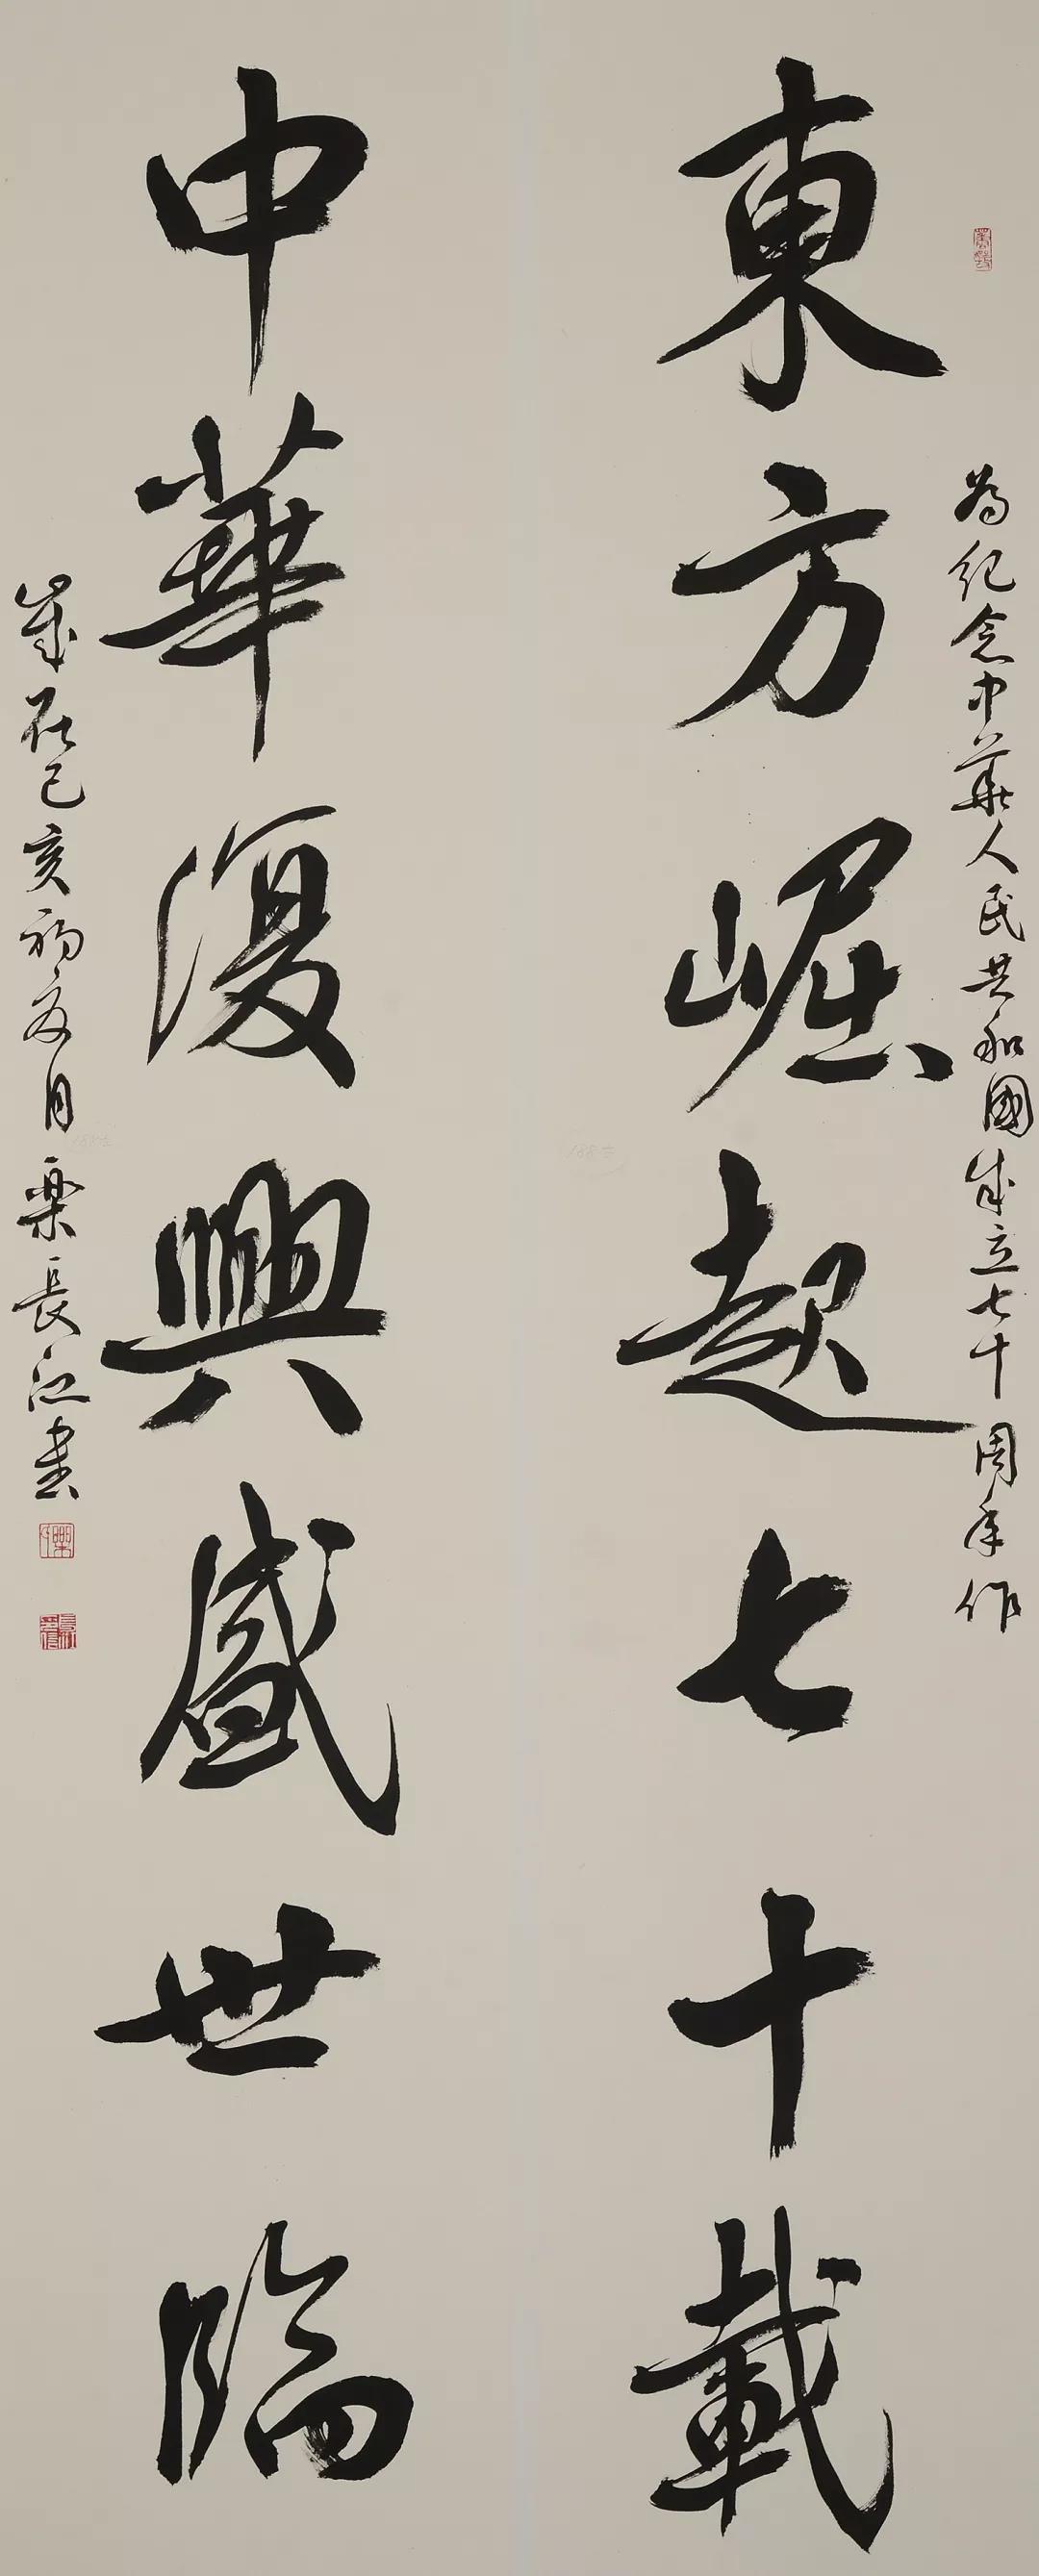 為紀念中華人民共和國成立七十周年作
東方崛起七十載
中華復興盛世臨
歲在己亥初夏月樂長江書